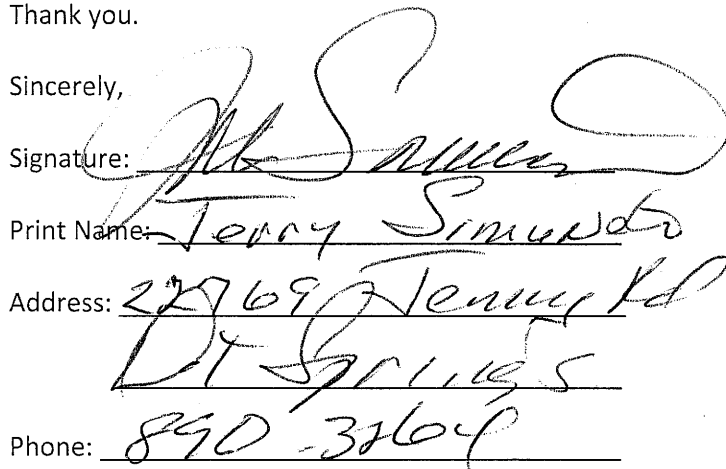 Thank you.
Sincerely,
Signature:
Print Name: Jerry Simundo
Address: 22769 Jenny Rd
Dt Springs
Phone: 890-3264